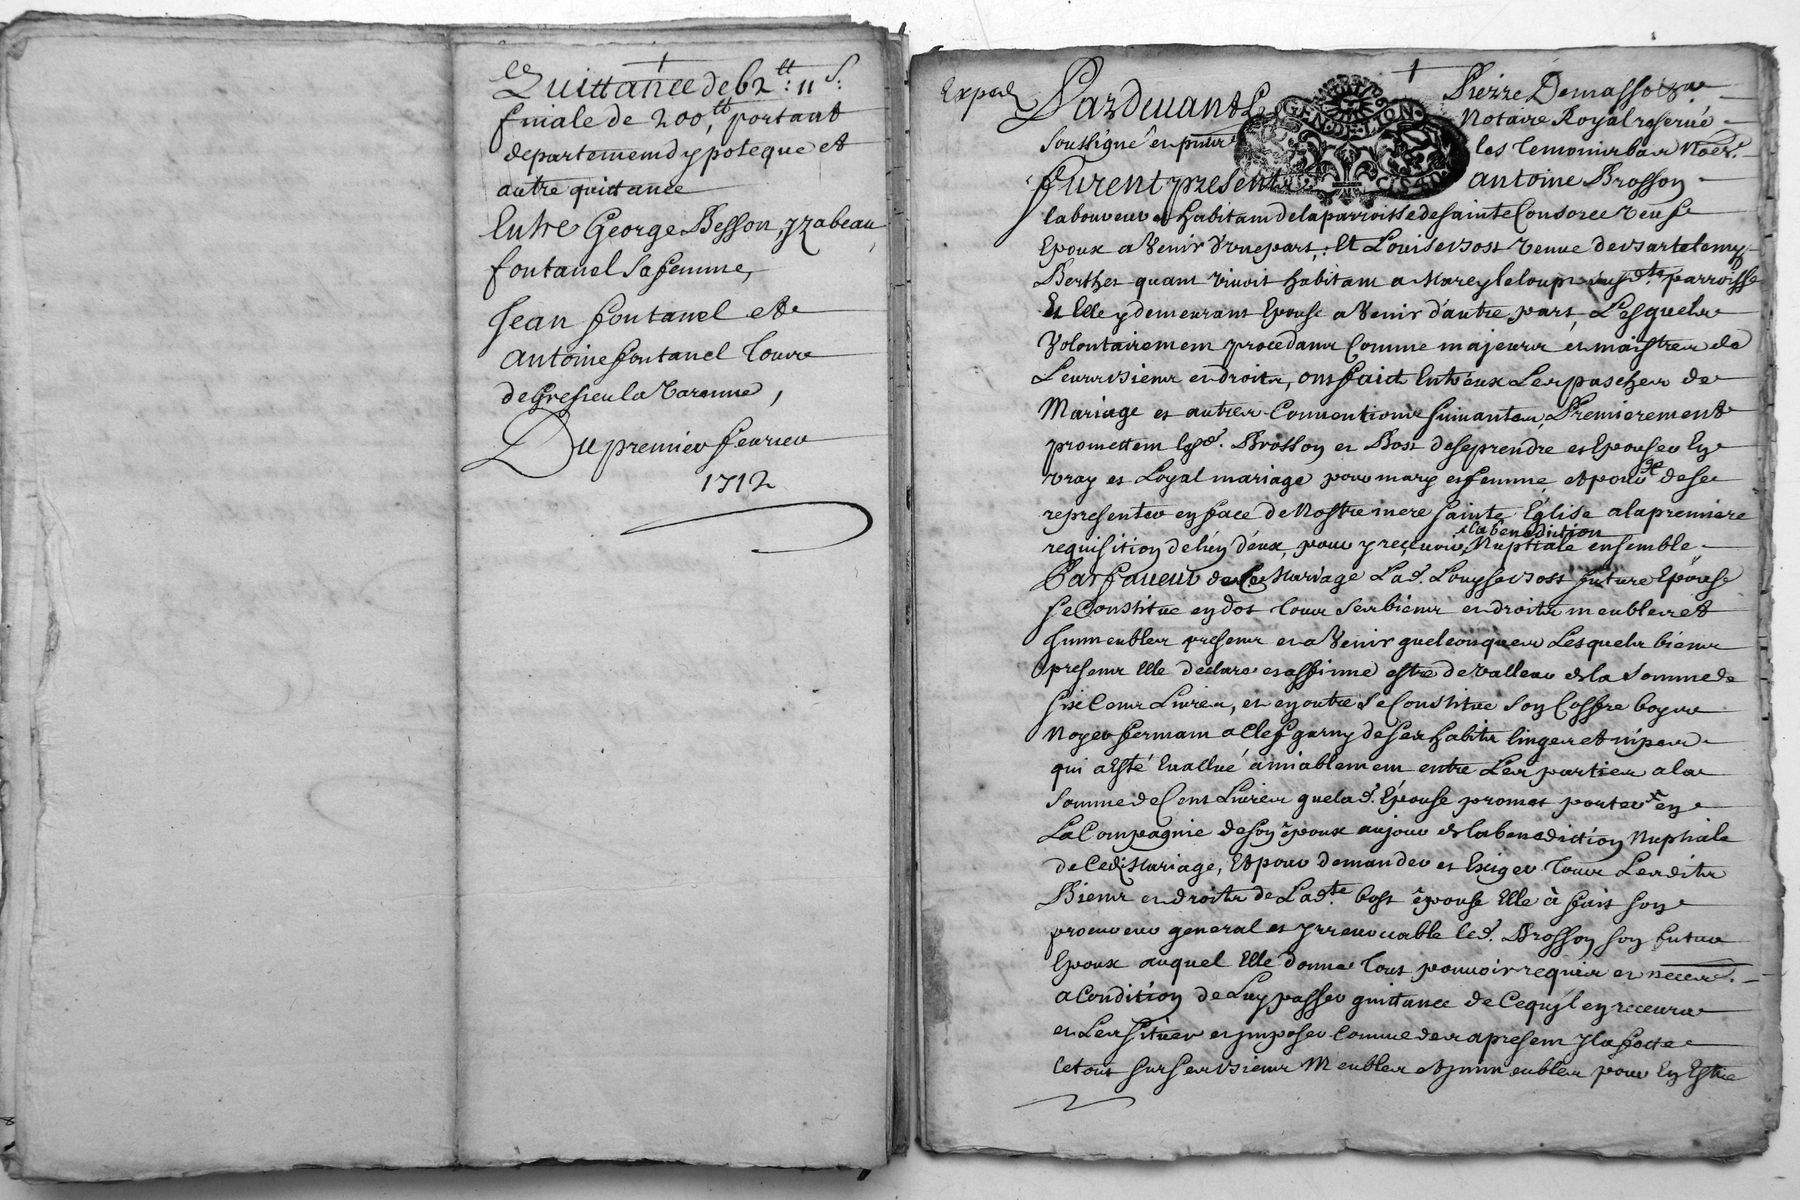 Quittance de 62ᵗᵗ: 11ˢ:
finiale de 200,ᵗᵗ portant
departemend ypoteque et
autre quittance
Entre George Besson, yzabeau
fontanel sa femme,
Jean fontanel et
antoine fontanel tous
de Gresieu la Varenne,
Du premier feurier
1712
Exped
Pardeuant Pierre Demasso
Notaire Royal reserué
soussigné en p les temoins bas No
furent presents antoine Brosson
laboureur habitant de la parroisse de sainte Consorce veuf
Epoux a Venir d'une part, Et Louise Bost veuue de Bartelemy
Berthet quant viuoit habitant a Marcy le loup susd.ᵗᵉ parroisse
et Elle y demeurant Epouse a Venir d'autre part, Lesquels
Volontairement procedans Comme majeurs et maistres de
Leurs biens et droits, ont faict Entr'eux Les paches de
Mariage et autres Conuentions suiuantes, Premierement
promettent lesd. Brosson et Bost de se prendre et Epouser En
vray et Loyal mariage pour mary et femme et pour ce de se
representer en face de Nostre mere sainte Eglise a la premiere
requisition de l'un d'eux, pour y receuoir la benediction Nuptiale ensemble
En faueur de Ce Mariage Lad. Louyse Bost future Epouse
se Constitue en dot tous ses biens et droits meubles et
Immeubles presens et a Venir quelconques Lesquels biens
presens Elle declare et affirme estre de valleur de la somme de
six Cens Liures, et en outre se Constitue son Coffre boys
Noyer fermant a Clef garny de ses habits linges et nipes
qui a Esté Euallué amiablement entre Les parties a la
somme de Cent Liures que lad. Epouse promet porter en
La Compagnie de son epoux au jour de la benediction Nuptiale
de Cedᵗ Mariage, Et pour demander et Exiger tous Lesdits
Biens et droits de Lad.ᵗᵉ Bost epouse Elle à fait son
procureur general et yrreuocable led. Brosson son futur
Epoux auquel Elle donne tout pouuoir requis et neces.
a Condition de Luy passer quittance de Ce qu'jl en receura
et Les situer et jmposer Comme des a present Jl a fait
le tout sur ses biens Meubles et jmmeubles pour En Estre